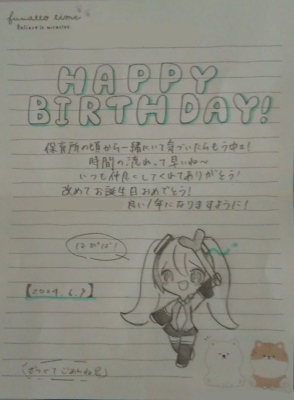 Believe in miracles.
HAPPY
BIRTHDAY!
保育所の頃から一緒にいて気づいたらもう中2!
時間の流れって早いね〜
いつも仲良くしてくれてありがとう!
改めてお誕生日おめでとう!
良い1年になりますように!
【2024.6.7】